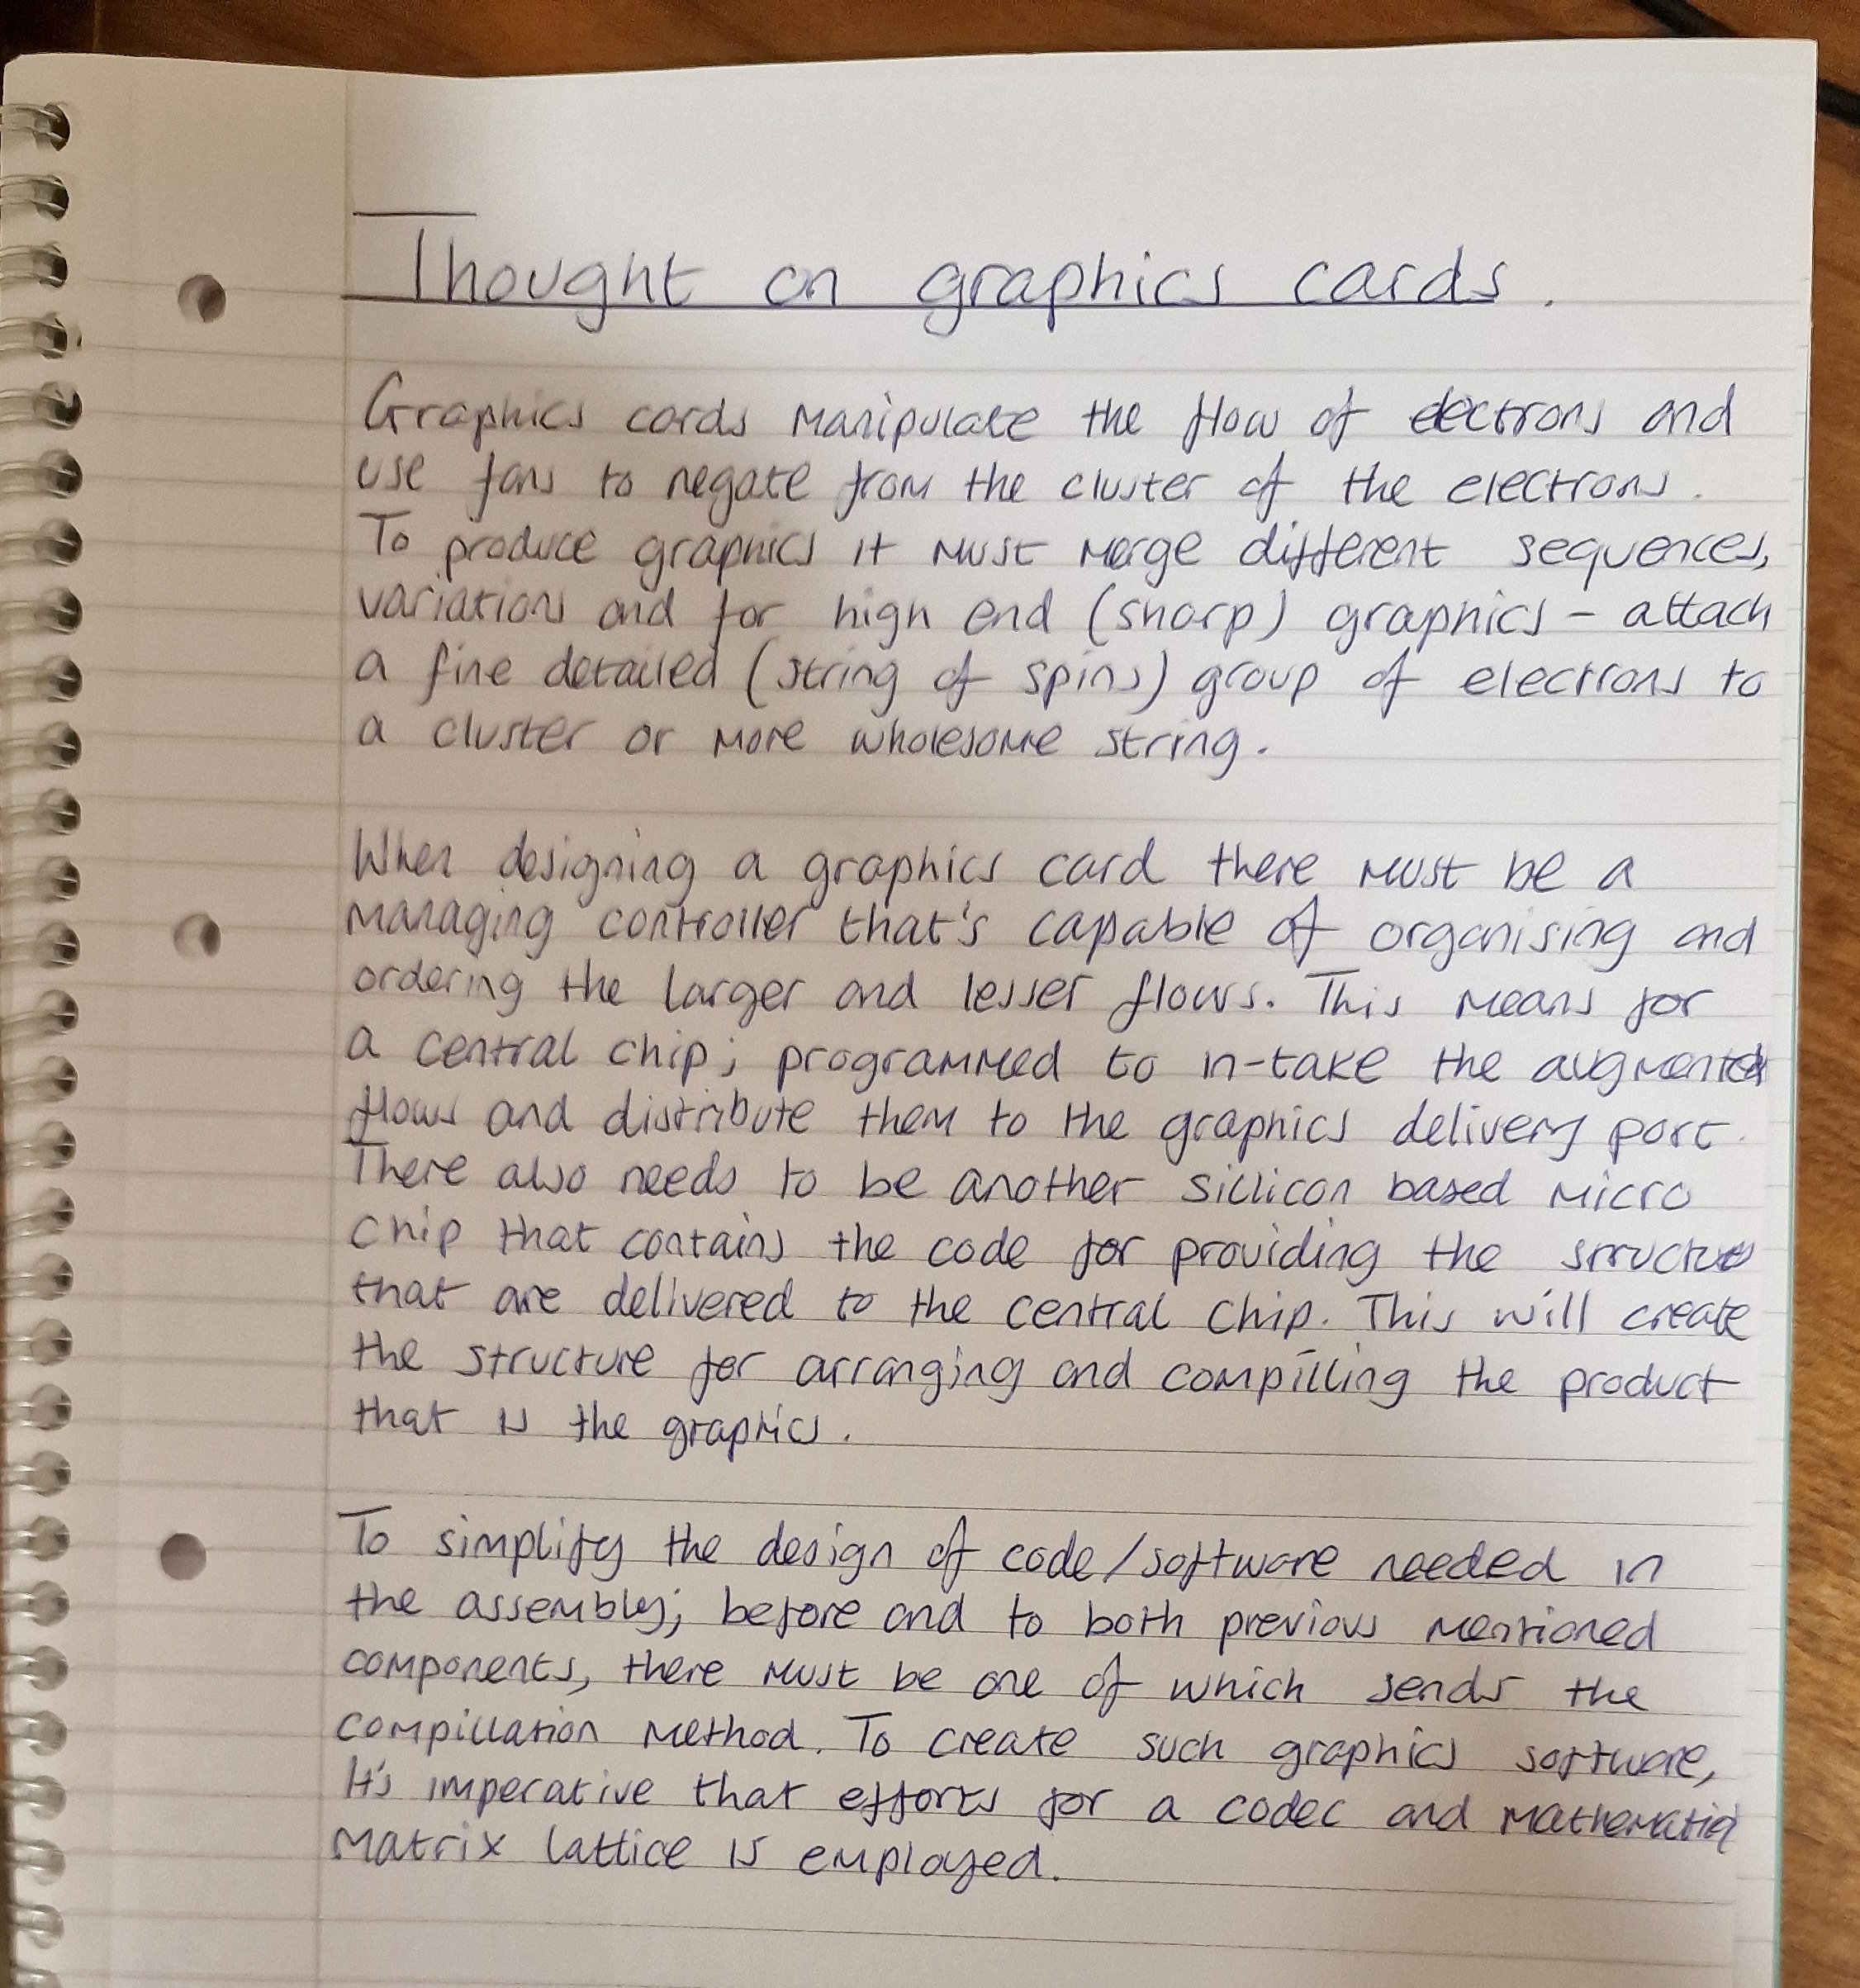 Thought on graphics cards.
Graphics cards manipulate the flow of electrons and
use fans to negate from the cluster of the electrons.
To produce graphics it must merge different sequences,
variations and for high end (sharp) graphics - attach
a fine detailed (string of spins) group of electrons to
a cluster or more wholesome string.
When designing a graphics card there must be a
managing controller that's capable of organising and
ordering the larger and lesser flows. This means for
a central chip; programmed to in-take the augmented
flows and distribute them to the graphics delivery port.
There also needs to be another sillicon based micro
chip that contains the code for providing the structures
that are delivered to the central chip. This will create
the structure for arranging and compilling the product
that is the graphics.
To simplify the design of code/software needed in
the assembly; before and to both previous mentioned
components, there must be one of which sends the
compillation method. To create such graphics software,
It's imperative that efforts for a codec and mathematical
matrix lattice is employed.